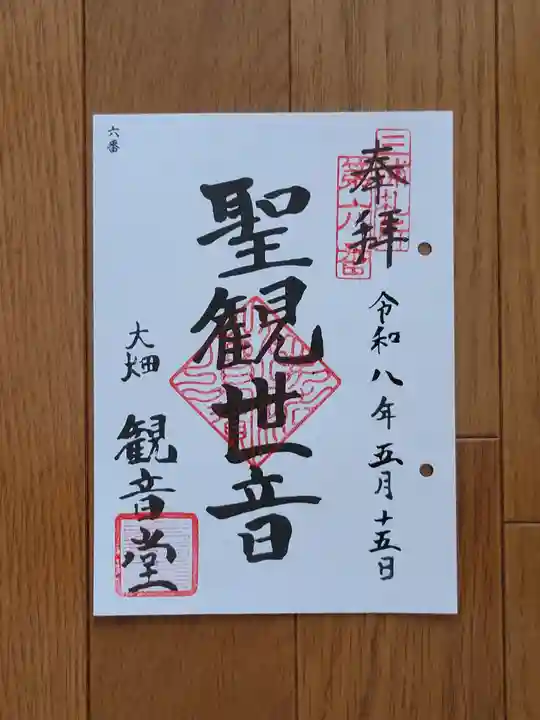 奉拝
令和八年五月十五日
聖観世音
大畑
観音堂
六番
第六番